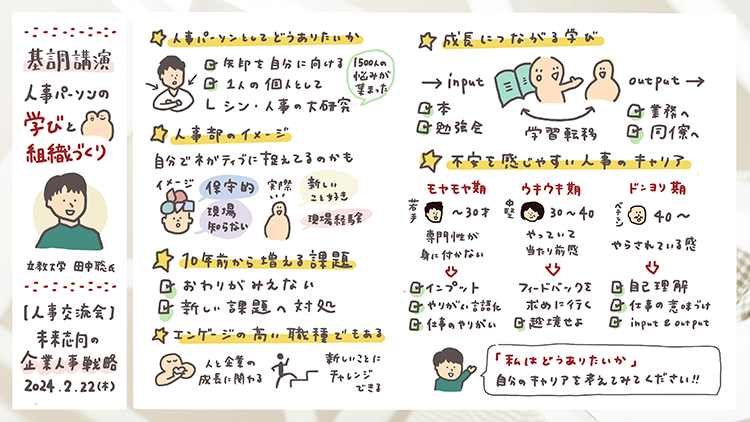 基調講演
人事パーソンの
学びと
組織づくり
立教大学 田中聡氏
【人事交流会】
未来志向の
企業人事戦略
2024.2.22(木)
人事パーソンとしてどうありたいか
矢印を自分に向ける
1人の個人として
シン・人事の大研究
1500人の
悩みが
集まった
人事部のイメージ
自分でネガティブに捉えてるのかも
イメージ
保守的
現場
知らない
実際
新しい
こと好き
現場経験
10年前から増える課題
おわりがみえない
新しい課題へ対処
エンゲージの高い職種でもある
人と企業の
成長に関わる
新しいことに
チャレンジ
できる
成長につながる学び
→input
本
勉強会
学習転移
output→
業務へ
同僚へ
不安を感じやすい人事のキャリア
モヤモヤ期
若手
~30才
専門性が
身に付かない
インプット
やりがい言語化
仕事のやりがい
ウキウキ期
中堅
30~40
やっていて
当たり前感
フィードバックを
求めに行く
越境せよ
ドンヨリ期
ベテラン
40~
やらされている感
自己理解
仕事の意味づけ
input & output
「私はどうありたいか」
自分のキャリアを考えてみてください!!